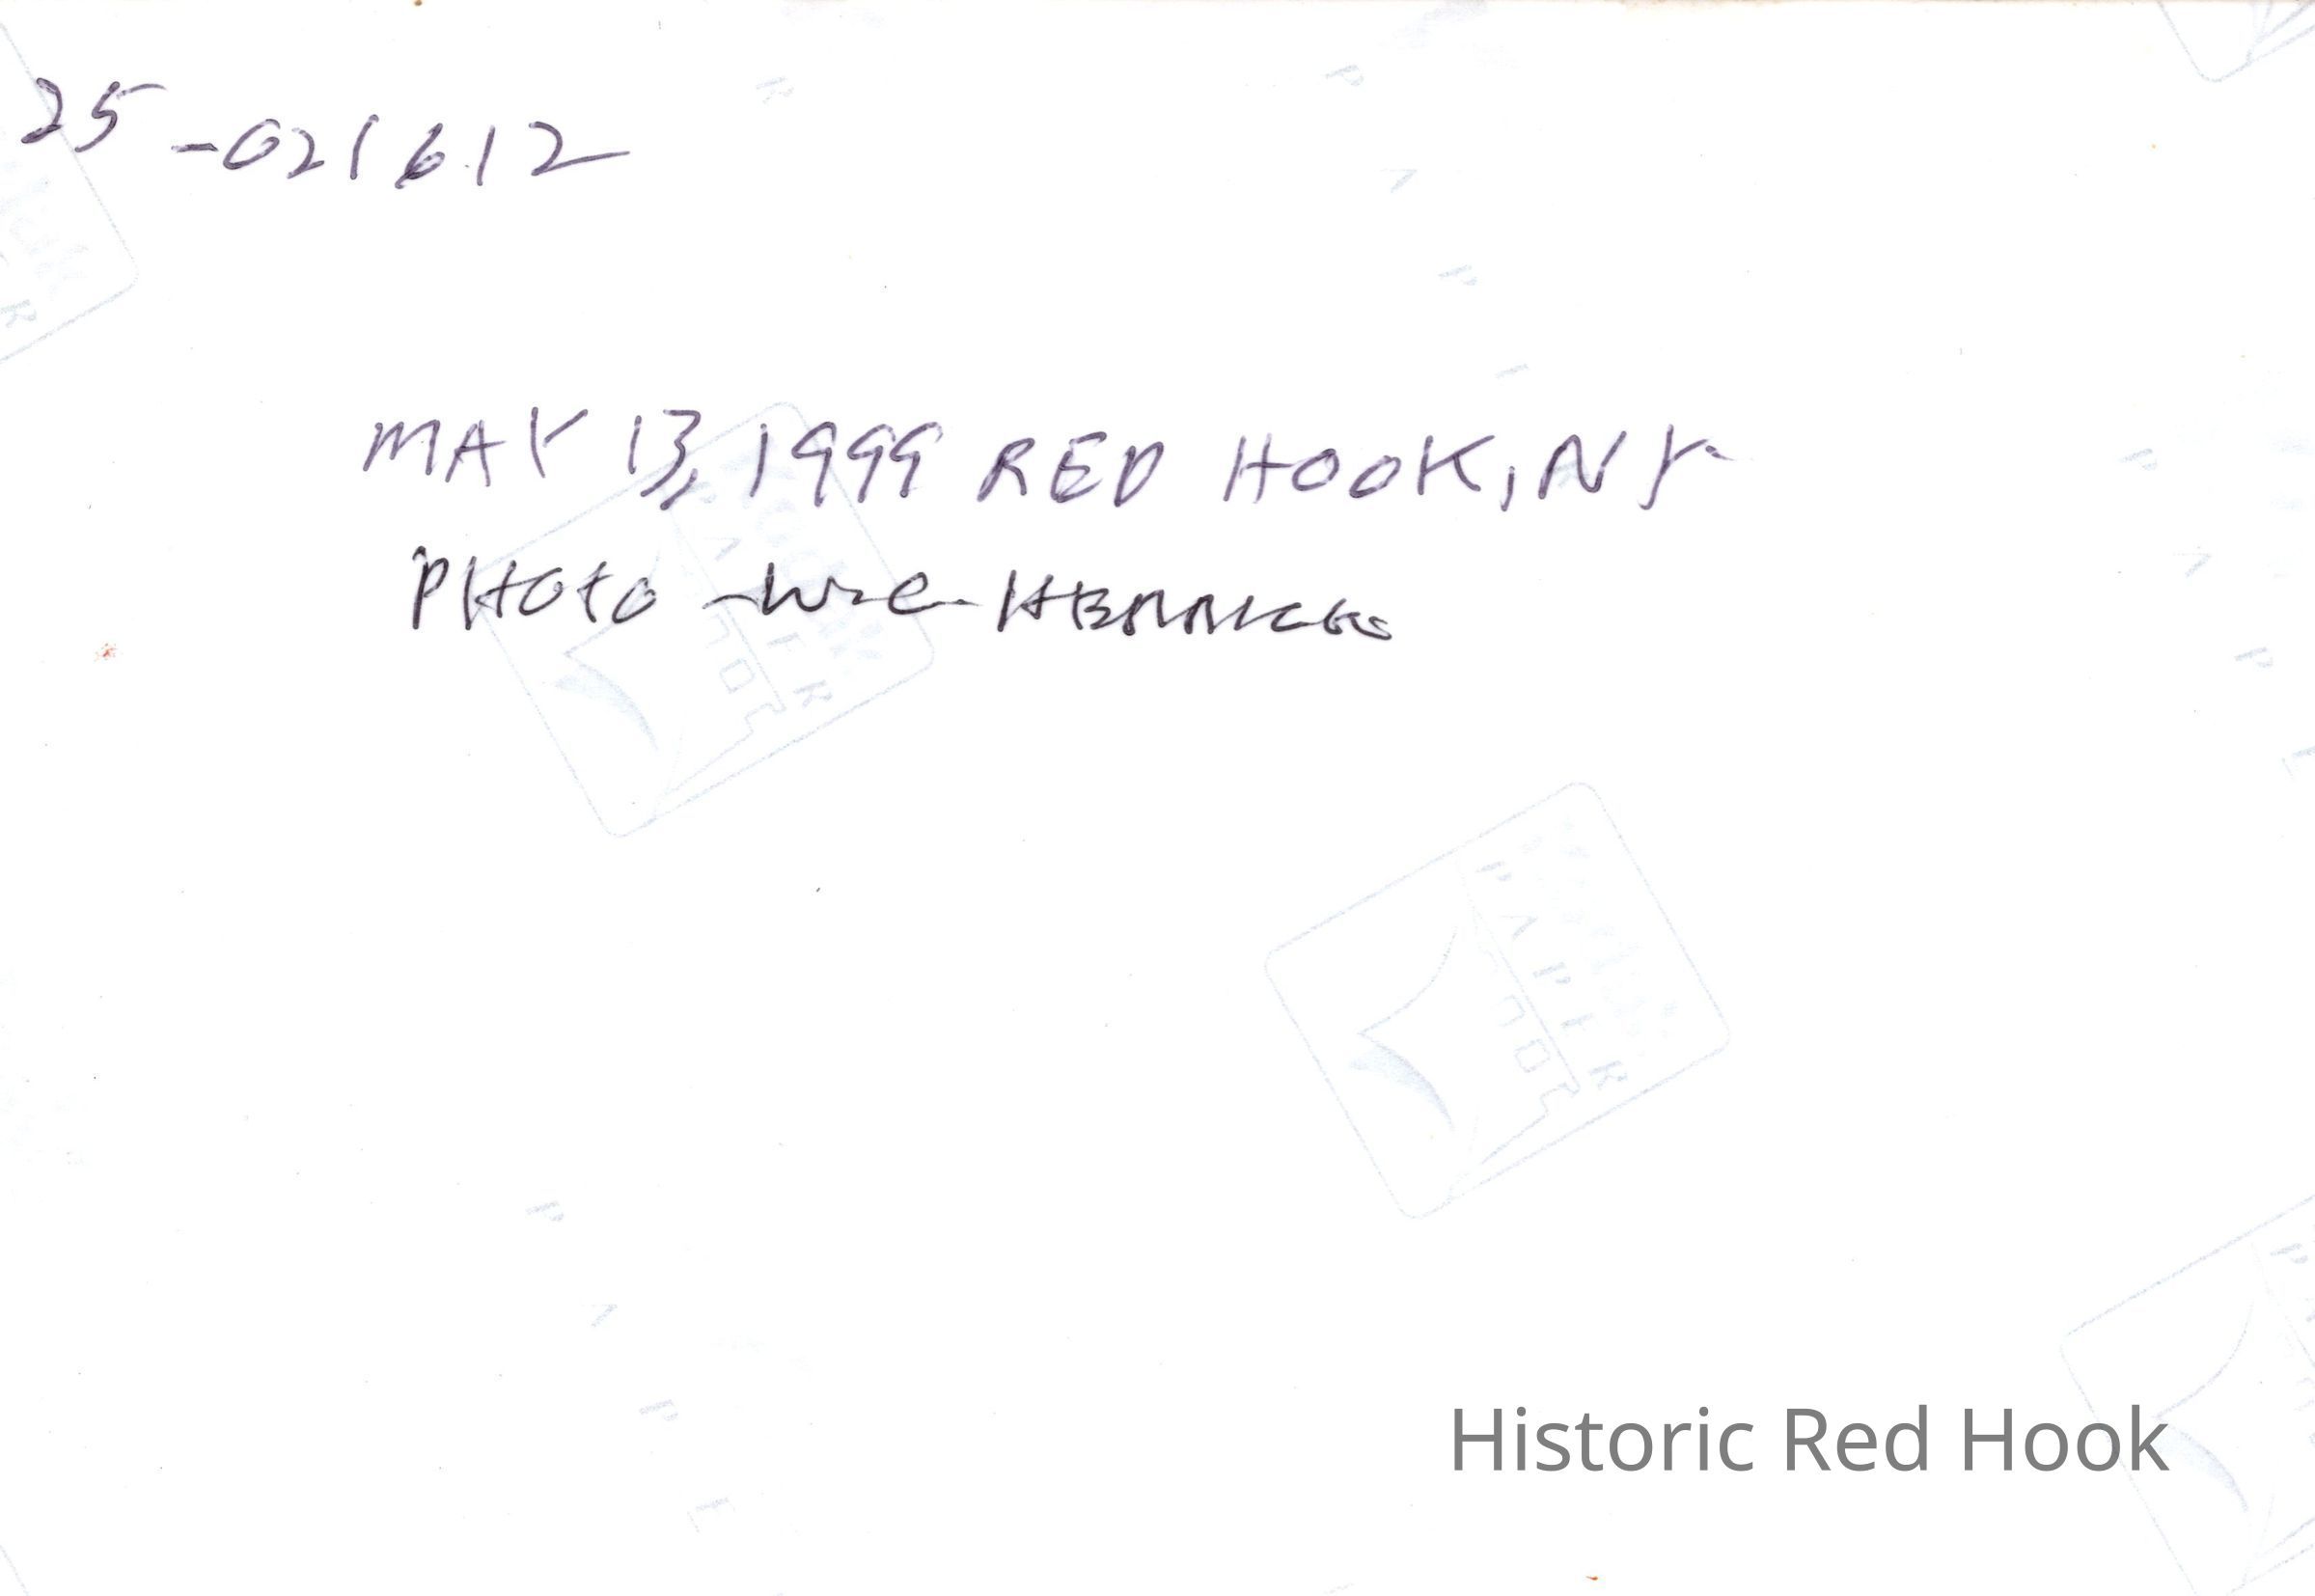 25-021612
MAY 13, 1999 RED HOOK, NY
PHOTO -
PAPER
PAPER
Historic Red Hook